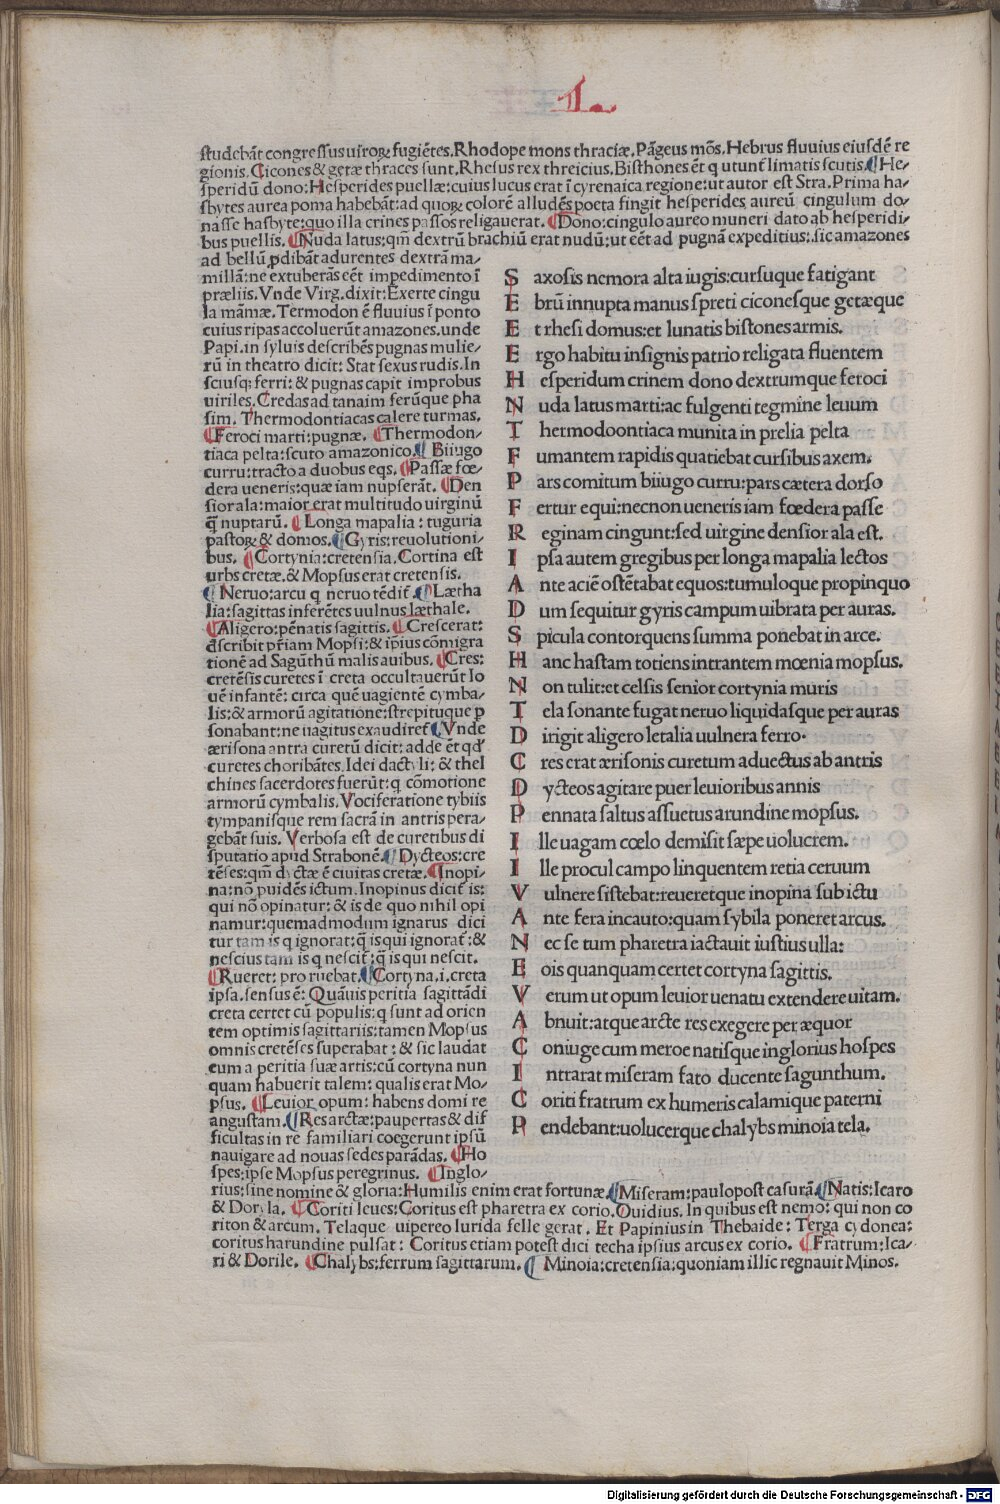 L
studebāt congressus uiroꝝ fugiētes. Rhodope mons thraciæ. Pāgeus mōs. Hebrus fluuius eiusdē re
gionis. Cicones & getæ thraces sunt. Rhesus rex threicius. Bisthones ēt q utunt̄ limatis scutis. ¶ He-
speridū dono: Hesperides puellæ: cuius lucus erat ī cyrenaica regione: ut autor est Stra. Prima ha-
sbytes aurea poma habebāt: ad quoꝝ colorē alludēs poeta fingit hesperides aureū cingulum do-
nasse hasbyte: quo illa crines passos religauerat. ¶ Dono: cingulo aureo muneri dato ab hesperidi-
bus puellis. ¶ Nuda latus: qm̄ dextrū brachiū erat nudū: ut eēt ad pugnā expeditius: sic amazones
ad bellū ꝓdibāt adurentes dextrā ma-
millā: ne extuberās eēt impedimento ī
præliis. Vnde Virg. dixit: Exerte cingu
la māmæ. Termodon ē fluuius ī ponto
cuius ripas accoluerūt amazones. unde
Papi. in syluis describēs pugnas mulie-
rū in theatro dicit: Stat sexus rudis. In
sciusq; ferri: & pugnas capit improbus
uiriles. Credas ad tanaim ferūque pha
sim. Thermodontiacas calere turmas.
¶ Feroci marti: pugnæ. ¶ Thermodon-
tiaca pelta: scuto amazonico. ¶ Biiugo
curru: tracto a duobus eqs. ¶ Passæ fœ-
dera ueneris: quæ iam nupserāt. ¶ Den
sior ala: maior erat multitudo uirginū
q̄ nuptarū. ¶ Longa mapalia: tuguria
pastoꝝ & domos. ¶ Gyris: reuolutioni-
bus. ¶ Cortynia: cretensia. Cortina est
urbs cretæ. & Mopsus erat cretensis.
¶ Neruo: arcu q neruo tēdit̄. ¶ Lætha
lia: sagittas inferētes uulnus læthale.
¶ Aligero: pēnatis sagittis. ¶ Crescerat:
dscribit pr̄iam Mopsi: & ip̄ius cōmigra
tionē ad Sagūthū malis auibus. ¶ Cres:
cretēsis curetes ī creta occultauerūt Io
uē infantē: circa quē uagientē cymba-
lis: & armorū agitatione: strepituque p
sonabant: ne uagitus exaudiret̄ ¶ Vnde
ærisona antra curetū dicit: adde ēt qd̄
curetes choribātes. Idei dactyli: & thel
chines sacerdotes fuerūt: q cōmotione
armorū cymbalis. Vociferatione tybiis
tympanisque rem sacrā in antris pera-
gebāt suis. Verbosa est de curetibus di
sputatio apud Strabonē. ¶ Dycteos: cre
tēses: qm̄ dyctæ ē ciuitas cretæ. ¶ Inopi-
na: nō puidēs ictum. Inopinus dicit̄ is:
qui nō opinatur: & is de quo nihil opi
namur: quemadmodum ignarus dici
tur tam is q ignorat: q̄ is qui ignorat̄: &
nescius tam is q nescit: q̄ is qui nescit.
¶ Rueret: pro ruebat. ¶ Cortyna. i. creta
ipsa. sensus ē: Quāuis peritia sagittādi
creta certet cū populis: q sunt ad orien
tem optimis sagittariis: tamen Mopsus
omnis cretēses superabat: & sic laudat
eum a peritia suæ artis: cū cortyna nun
quam habuerit talem: qualis erat Mo-
psus. ¶ Leuior opum: habens domi re
angustam. ¶ Res arctæ: paupertas & dif
ficultas in re familiari coegerunt ipsū
nauigare ad nouas sedes parādas. ¶ Ho
spes: ipse Mopsus peregrinus. ¶ Inglo-
rius: sine nomine & gloria: Humilis enim erat fortunæ ¶ Miseram: paulo post casurā ¶ Natis: Icaro
& Doryla. ¶ Coriti leues: Coritus est pharetra ex corio. Ouidius. In quibus est nemo: qui non co
riton & arcum. Telaque uipereo lurida felle gerat. Et Papinius in Thebaide: Terga cydonea:
coritus harundine pulsat: Coritus etiam potest dici techa ipsius arcus ex corio. ¶ Fratrum: Ica-
ri & Dorile. ¶ Chalybs: ferrum sagittarum. ¶ Minoia: cretensia: quoniam illic regnauit Minos.
S axosis nemora alta iugis: cursuque fatigant
E brū innupta manus spreti ciconesque getæque
E t rhesi domus: et lunatis bistones armis.
E rgo habitu insignis patrio religata fluentem
H esperidum crinem dono dextrumque feroci
N uda latus marti: ac fulgenti tegmine leuum
T hermodoontiaca munita in prelia pelta
F umantem rapidis quatiebat cursibus axem.
P ars comitum biiugo curru: pars cætera dorso
F ertur equi: necnon ueneris iam fœdera passe
R eginam cingunt: sed uirgine densior ala est.
I psa autem gregibus per longa mapalia lectos
A nte aciē ostētabat equos: tumuloque propinquo
D um sequitur gyris campum uibrata per auras.
S picula contorquens summa ponebat in arce.
H anc hastam totiens intrantem mœnia mopsus.
N on tulit: et celsis senior cortynia muris
T ela sonante fugat neruo liquidasque per auras
D irigit aligero letalia uulnera ferro.
C res erat ærisonis curetum aduectus ab antris
D ycteos agitare puer leuioribus annis
P ennata saltus assuetus arundine mopsus.
I lle uagam cœlo demisit sæpe uolucrem.
I lle procul campo linquentem retia ceruum
V ulnere sistebat: reueretque inopina sub ictu
A nte fera incauto: quam sybila poneret arcus.
N ec se tum pharetra iactauit iustius ulla:
E ois quanquam certet cortyna sagittis.
V erum ut opum leuior uenatu extendere uitam.
A bnuit: atque arcte res exegere per æquor
C oniuge cum meroe natisque inglorius hospes
I ntrarat miseram fato ducente sagunthum.
C oriti fratrum ex humeris calamique paterni
P endebant: uolucerque chalybs minoia tela.
Digitalisierung gefördert durch die Deutsche Forschungsgemeinschaft - DFG